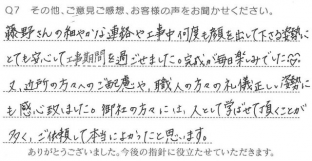 Q7 その他、ご意見ご感想、お客様の声をお聞かせください。
藤野さんの細やかな連絡や工事中何度も顔を出して下さる姿勢に
とても安心して工事期間を過ごせました。完成が毎日楽しみでした。
又、近所の方々へのご配慮や、職人の方々の礼儀正しい姿勢に
も感心致しました。御社の方々には、人として学ばせて頂くことが
多く、ご依頼して本当によかったと思います。
ありがとうございました。今後の指針に役立たせていただきます。